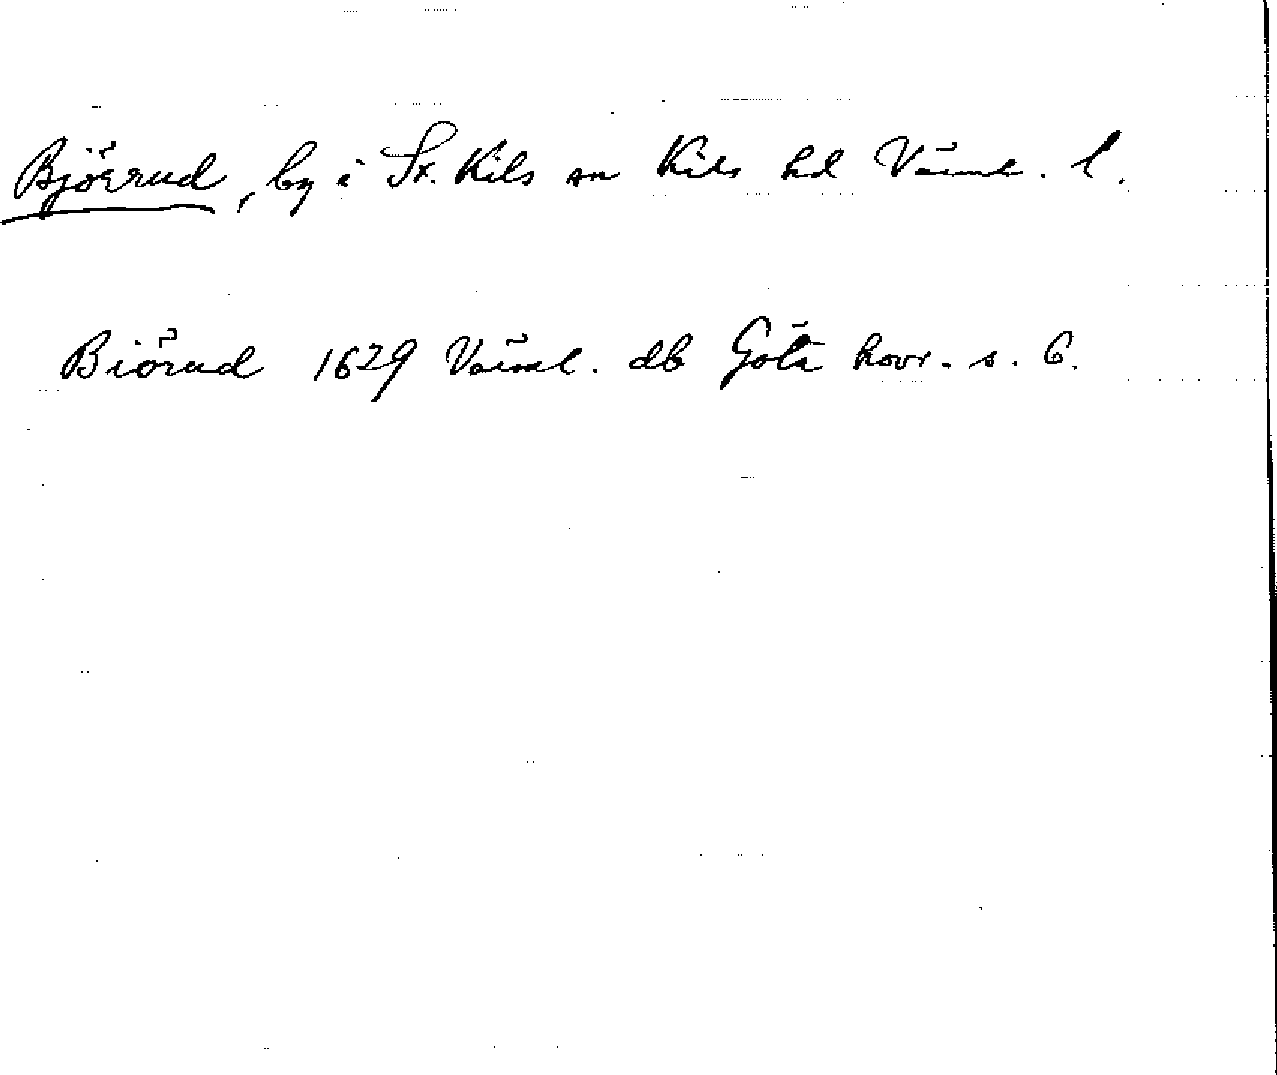 Björrud, by i St. Kils sn Kils hd Värml. l.
Biörud 1629 Värml. db Göta hovr. s. 6.